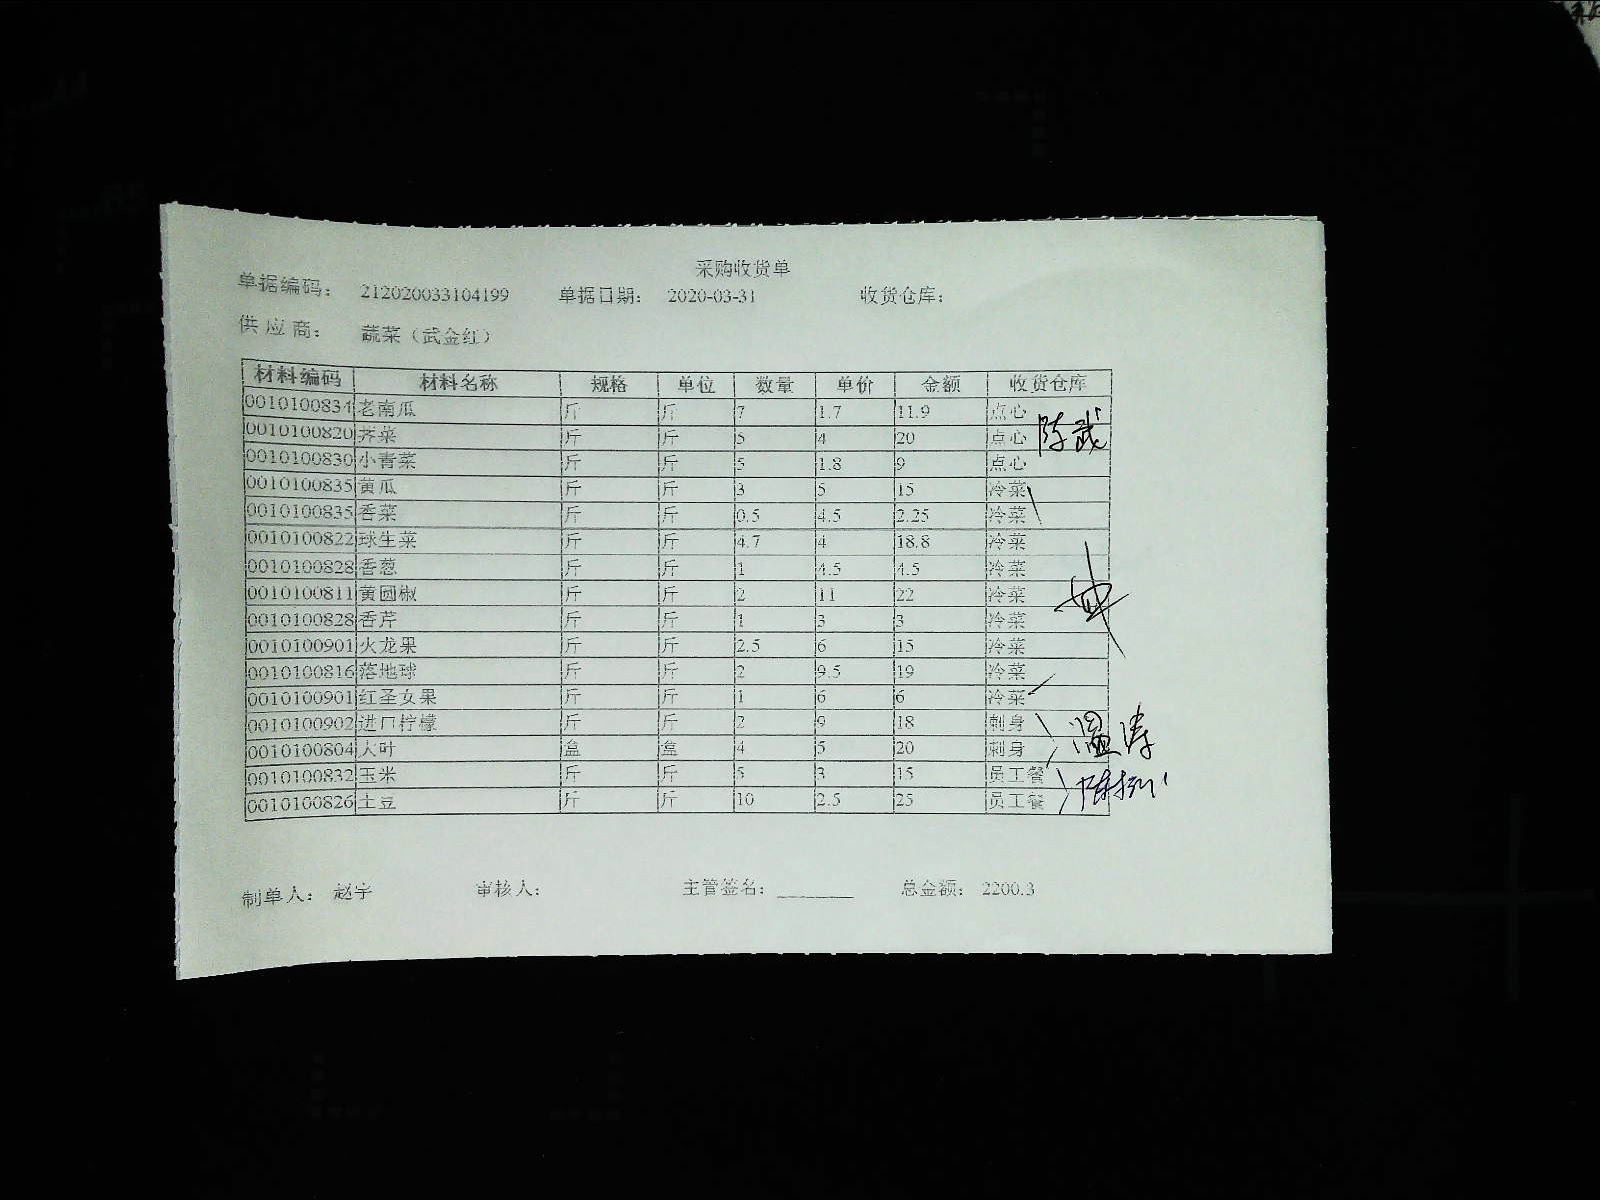 采购收货单
单据编码： 212020033104199 单据日期： 2020-03-31 收货仓库：
供应商： 蔬菜（武金红）
材料编码 材料名称 规格 单位 数量 单价 金额 收货仓库
0010100834 老南瓜 斤 斤 7 1.7 11.9 点心
0010100820 荠菜 斤 斤 5 4 20 点心 陈武
0010100830 小青菜 斤 斤 5 1.8 9 点心
0010100835 黄瓜 斤 斤 3 5 15 冷菜
0010100835 香菜 斤 斤 0.5 4.5 2.25 冷菜
0010100822 球生菜 斤 斤 4.7 4 18.8 冷菜
0010100828 香葱 斤 斤 1 4.5 4.5 冷菜
0010100811 黄圆椒 斤 斤 2 11 22 冷菜
0010100828 香芹 斤 斤 1 3 3 冷菜
0010100901 火龙果 斤 斤 2.5 6 15 冷菜
0010100816 落地球 斤 斤 2 9.5 19 冷菜
0010100901 红圣女果 斤 斤 1 6 6 冷菜
0010100902 进口柠檬 斤 斤 2 9 18 刺身
0010100804 大叶 盒 盒 4 5 20 刺身 温涛
0010100832 玉米 斤 斤 5 3 15 员工餐
0010100826 土豆 斤 斤 10 2.5 25 员工餐
制单人： 赵宇 审核人： 主管签名： 总金额： 2200.3